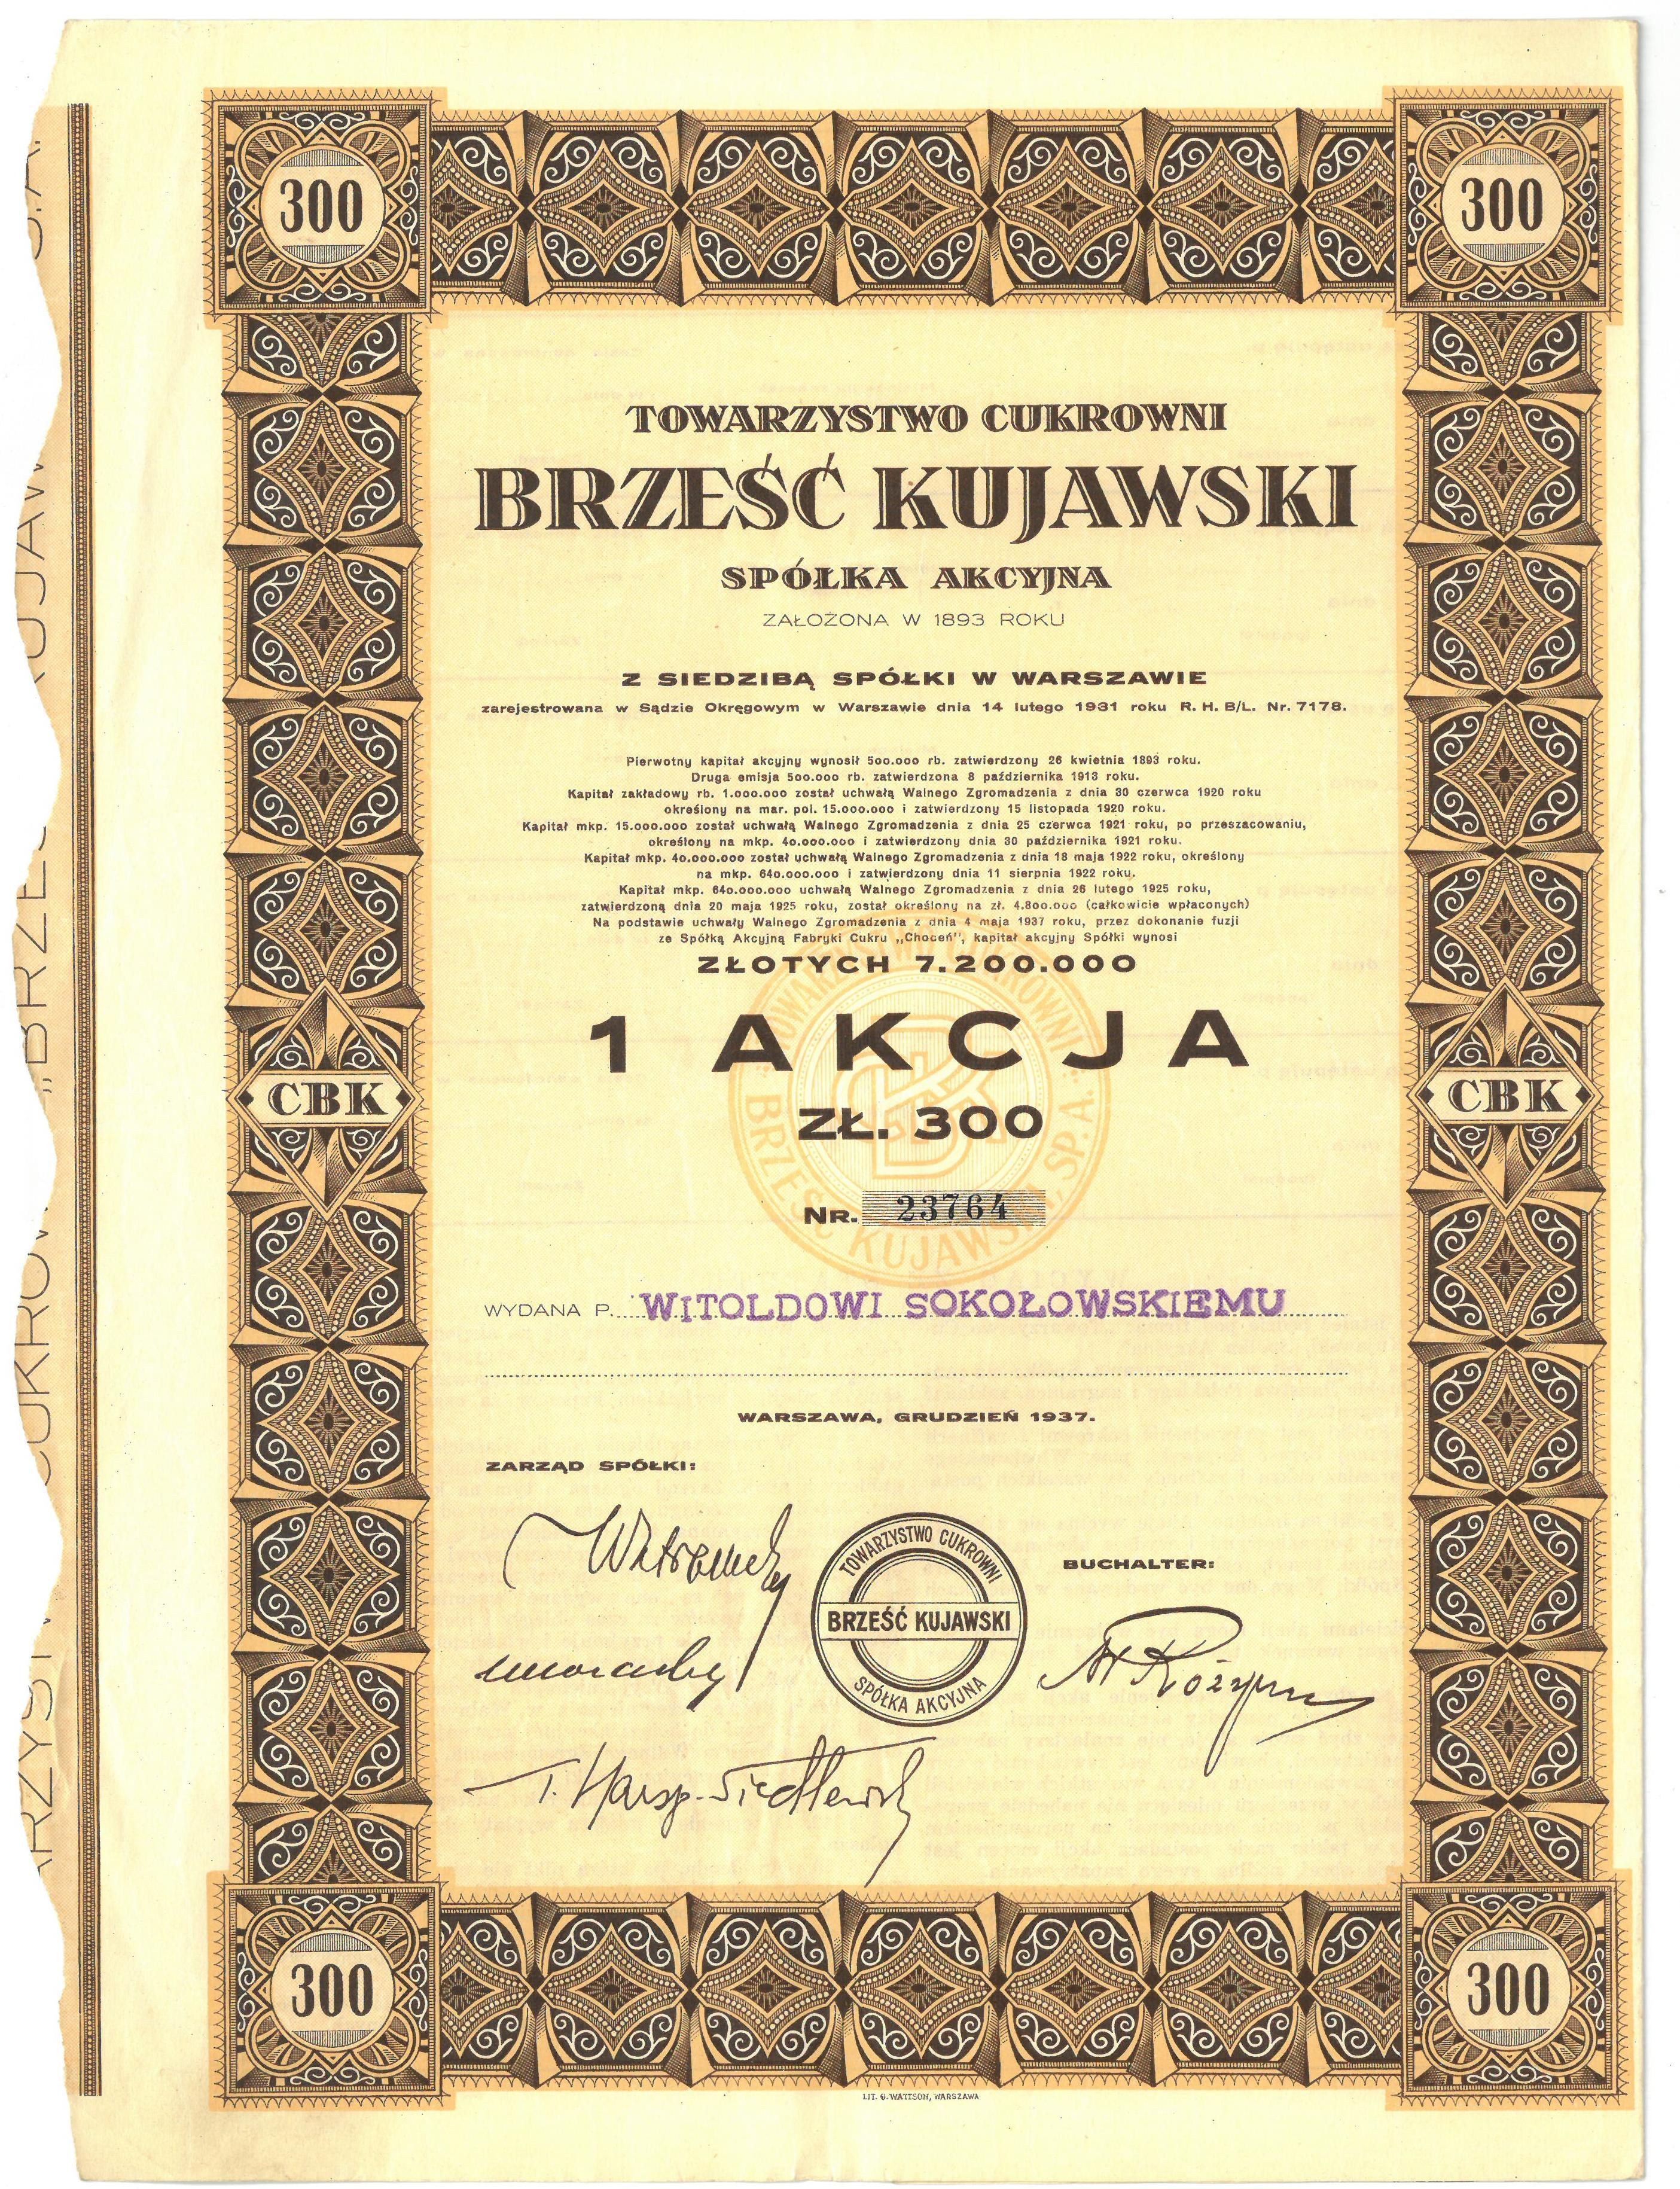 300
300
TOWARZYSTWO CUKROWNI
BRZEŚĆ KUJAWSKI
SPÓŁKA AKCYJNA
ZAŁOŻONA W 1893 ROKU
Z SIEDZIBĄ SPÓŁKI W WARSZAWIE
zarejestrowana w Sądzie Okręgowym w Warszawie dnia 14 lutego 1931 roku R. H. B/L. Nr. 7178.
Pierwotny kapitał akcyjny wynosił 500.000 rb. zatwierdzony 26 kwietnia 1893 roku.
Druga emisja 500.000 rb. zatwierdzona 8 października 1913 roku.
Kapitał zakładowy rb. 1.000.000 został uchwałą Walnego Zgromadzenia z dnia 30 czerwca 1920 roku
określony na mar. pol. 15.000.000 i zatwierdzony 15 listopada 1920 roku.
Kapitał mkp. 15.000.000 został uchwałą Walnego Zgromadzenia z dnia 25 czerwca 1921 roku, po przeszacowaniu,
określony na mkp. 40.000.000 i zatwierdzony dnia 30 października 1921 roku.
Kapitał mkp. 40.000.000 został uchwałą Walnego Zgromadzenia z dnia 18 maja 1922 roku, określony
na mkp. 640.000.000 i zatwierdzony dnia 11 sierpnia 1922 roku.
Kapitał mkp. 640.000.000 uchwałą Walnego Zgromadzenia z dnia 26 lutego 1925 roku,
zatwierdzoną dnia 20 maja 1925 roku, został określony na zł. 4.800.000 (całkowicie wpłaconych)
Na podstawie uchwały Walnego Zgromadzenia z dnia 4 maja 1937 roku, przez dokonanie fuzji
ze Spółką Akcyjną Fabryki Cukru „Choceń", kapitał akcyjny Spółki wynosi
ZŁOTYCH 7.200.000
1 AKCJA
CBK
CBK
ZŁ. 300
TOWARZYSTWO CUKROWNI
BRZEŚĆ KUJAWSKI, SP. A.
NR. 23764
WYDANA P. WITOLDOWI SOKOŁOWSKIEMU
WARSZAWA, GRUDZIEŃ 1937.
ZARZĄD SPÓŁKI:
BUCHALTER:
TOWARZYSTWO CUKROWNI
BRZEŚĆ KUJAWSKI
SPÓŁKA AKCYJNA
300
300
LIT. G. WATTSON, WARSZAWA